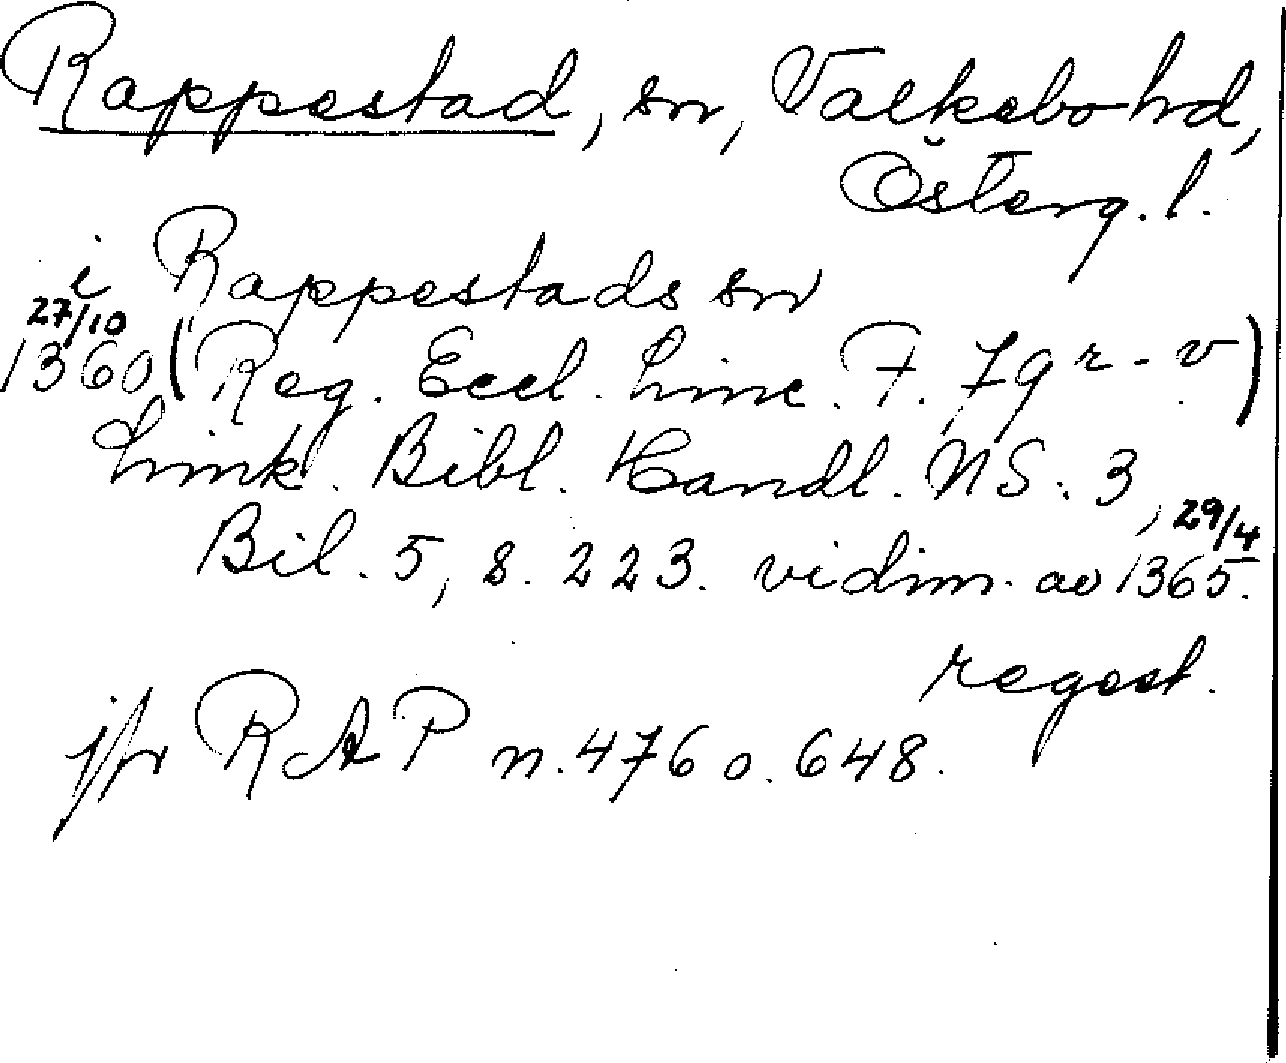 Rappestad, sn, Valkebo hd,
Österg. l.
i Rappestads sn
27/10
1360 (Reg. Eccl. Linc. F. 79 r-v)
Link. Bibl. Handl. NS. 3,
Bil. 5, s. 223. vidim. av 29/4 1365.
regest.
jfr RAP n. 476 o. 648.